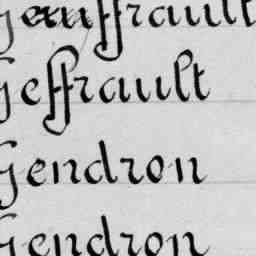 Geauffrault
Geffrault
Gendron
Gendron